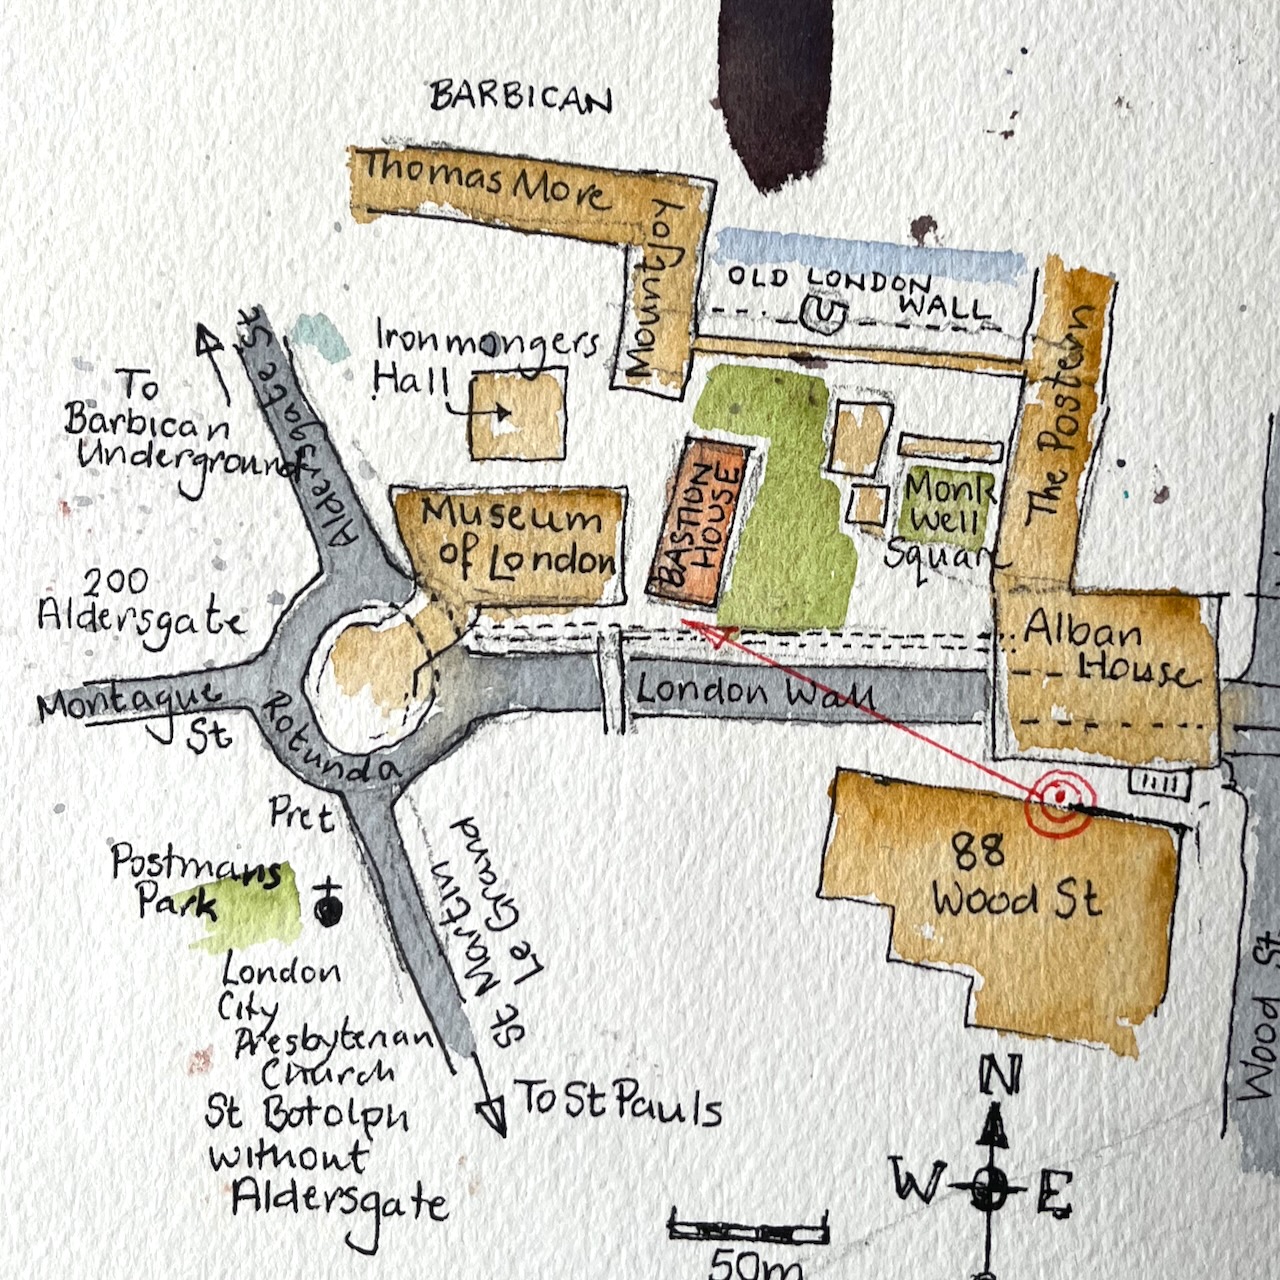 BARBICAN
Thomas More
Mountjoy
OLD LONDON
WALL
The Postern
Ironmongers
Hall
Aldersgate St
To
Barbican
Underground
BASTION
HOUSE
Monk
Well
Square
Museum
of London
200
Aldersgate
Alban
House
Montague
St
Rotunda
London Wall
Pret
Postmans
Park
88
Wood St
St Martin
Le Grand
London
City
Presbyterian
Church
St Botolph
without
Aldersgate
To St Pauls
Wood St
N
W E
50m